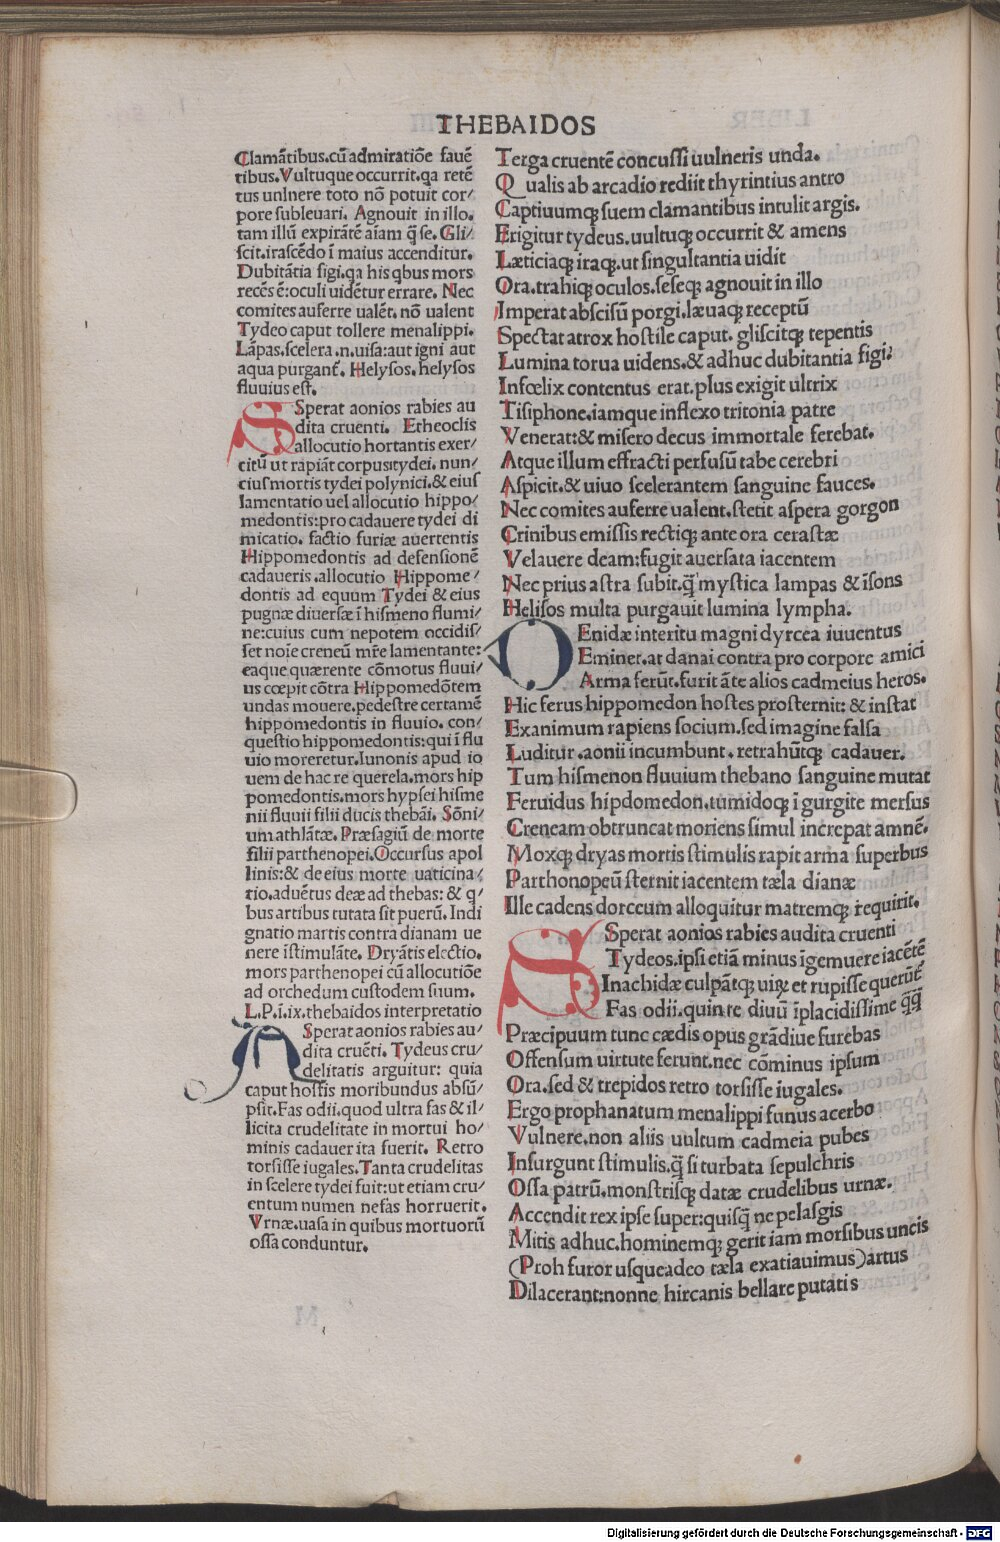 THEBAIDOS
Clamãtibus.cũ admiratiõe fauẽ
tibus.Vultuque occurrit.qa retẽ
tus unlnere toto nõ potuit cor/
pore subleuari. Agnouit in illo.
tam illũ expirãtẽ aĩam q̃ se. Gli/
scit.irascẽdo ĩ maius accenditur.
Dubitãtia figi.qa his qbus mors
recẽs ẽ:oculi uidẽtur errare. Nec
comites auferre ualẽt. nõ ualent
Tydeo caput tollere menalippi.
Lãpas.scelera .n.uisa:aut igni aut
aqua purgant̃. Helysos. helysos
fluuius est.
ASperat aonios rabies au
dita cruenti. Etheoclis
allocutio hortantis exer/
citũ ut rapiãt corpus tydei. nun/
cius mortis tydei polynici.& eius
lamentatio uel allocutio hippo/
medontis:pro cadauere tydei di
micatio. factio furiæ auertentis
Hippomedontis ad defensionẽ
cadaueris.allocutio Hippome/
dontis ad equum Tydei & eius
pugnæ diuersæ ĩ hismeno flumi/
ne:cuius cum nepotem occidis/
set noĩe creneũ mr̃e lamentante:
eaque quærente cõmotus fluui/
us cœpit cõtra Hippomedõtem
undas mouere.pedestre certamẽ
hippomedontis in fluuio. con/
questio hippomedontis:qui ĩ flu
uio moreretur.Iunonis apud io
uem de hac re querela.mors hip
pomedontis.mors hypsei hisme
nii fluuii filii ducis thebãi. Sõni/
um athlãtæ. Præsagiũ de morte
filii parthenopei.Occursus apol
linis:& de eius morte uaticina/
tio.aduẽtus deæ ad thebas: & q/
bus artibus tutata sit puerũ. Indi
gnatio martis contra dianam ue
nere ĩstimulãte. Dryãtis electio.
mors parthenopei cũ allocutiõe
ad orchedum custodem suum.
L.P.ĩ.ix.thebaidos interpretatio
ASperat aonios rabies au/
dita cruẽti. Tydeus cru/
delitatis arguitur: quia
caput hostis moribundus absũ/
psit.Fas odii.quod ultra fas & il/
licita crudelitate in mortui ho/
minis cadauer ita fuerit. Retro
torsisse iugales.Tanta crudelitas
in scelere tydei fuit:ut etiam cru/
entum numen nefas horruerit.
Vrnæ.uasa in quibus mortuorũ
ossa conduntur.
Terga cruentẽ concussi uulneris unda.
Qualis ab arcadio rediit thyrintius antro
Captiuumq; suem clamantibus intulit argis.
Erigitur tydeus.uultuq; occurrit & amens
Læticiaq; iraq;.ut singultantia uidit
Ora.trahiq; oculos.seseq; agnouit in illo
Imperat abscisũ porgi.læuaq; receptũ
Spectat atrox hostile caput. gliscitq; tepentis
Lumina torua uidens.& adhuc dubitantia figi.
Infœlix contentus erat.plus exigit ultrix
Tisiphone.iamque inflexo tritonia patre
Venerat:& misero decus immortale ferebat.
Atque illum effracti perfusũ tabe cerebri
Aspicit.& uiuo scelerantem sanguine fauces.
Nec comites auferre ualent.stetit aspera gorgon
Crinibus emissis rectiq; ante ora cerastæ
Velauere deam:fugit auersata iacentem
Nec prius astra subit.q̃ mystica lampas & ĩsons
Helisos multa purgauit lumina lympha.
OEnidæ interitu magni dyrcea iuuentus
Eminet.at danai contra pro corpore amici
Arma ferũt.furit ãte alios cadmeius heros.
Hic ferus hippomedon hostes prosternit: & instat
Exanimum rapiens socium.sed imagine falsa
Luditur.aonii incumbunt.retrahũtq; cadauer.
Tum hismenon fluuium thebano sanguine mutat
Feruidus hipdomedon.tumidoq; ĩ gurgite mersus
Creneam obtruncat moriens simul increpat amnẽ.
Moxq; dryas mortis stimulis rapit arma superbus
Parthonopeũ sternit iacentem tæla dianæ
Ille cadens dorceum alloquitur matremq; requirit.
ASperat aonios rabies audita cruenti
Tydeos.ipsi etiã minus ĩgemuere iacẽtẽ
Inachidæ culpãtq; uiꝝ et rupisse querũt̃
Fas odii.quin te diuũ ĩplacidissime q̃q̃
Præcipuum tunc cædis opus grãdiue furebas
Offensum uirtute ferunt.nec cõminus ipsum
Ora.sed & trepidos retro torsisse iugales.
Ergo prophanatum menalippi funus acerbo
Vulnere.non aliis uultum cadmeia pubes
Insurgunt stimulis.q̃ si turbata sepulchris
Ossa patrũ.monstrisq; datæ crudelibus urnæ.
Accendit rex ipse super:quisq̃ ne pelasgis
Mitis adhuc.hominemq; gerit iam morsibus uncis
(Proh furor usqueadeo tæla exatiauimus)artus
Dilacerant:nonne hircanis bellare putatis
Digitalisierung gefördert durch die Deutsche Forschungsgemeinschaft - DFG